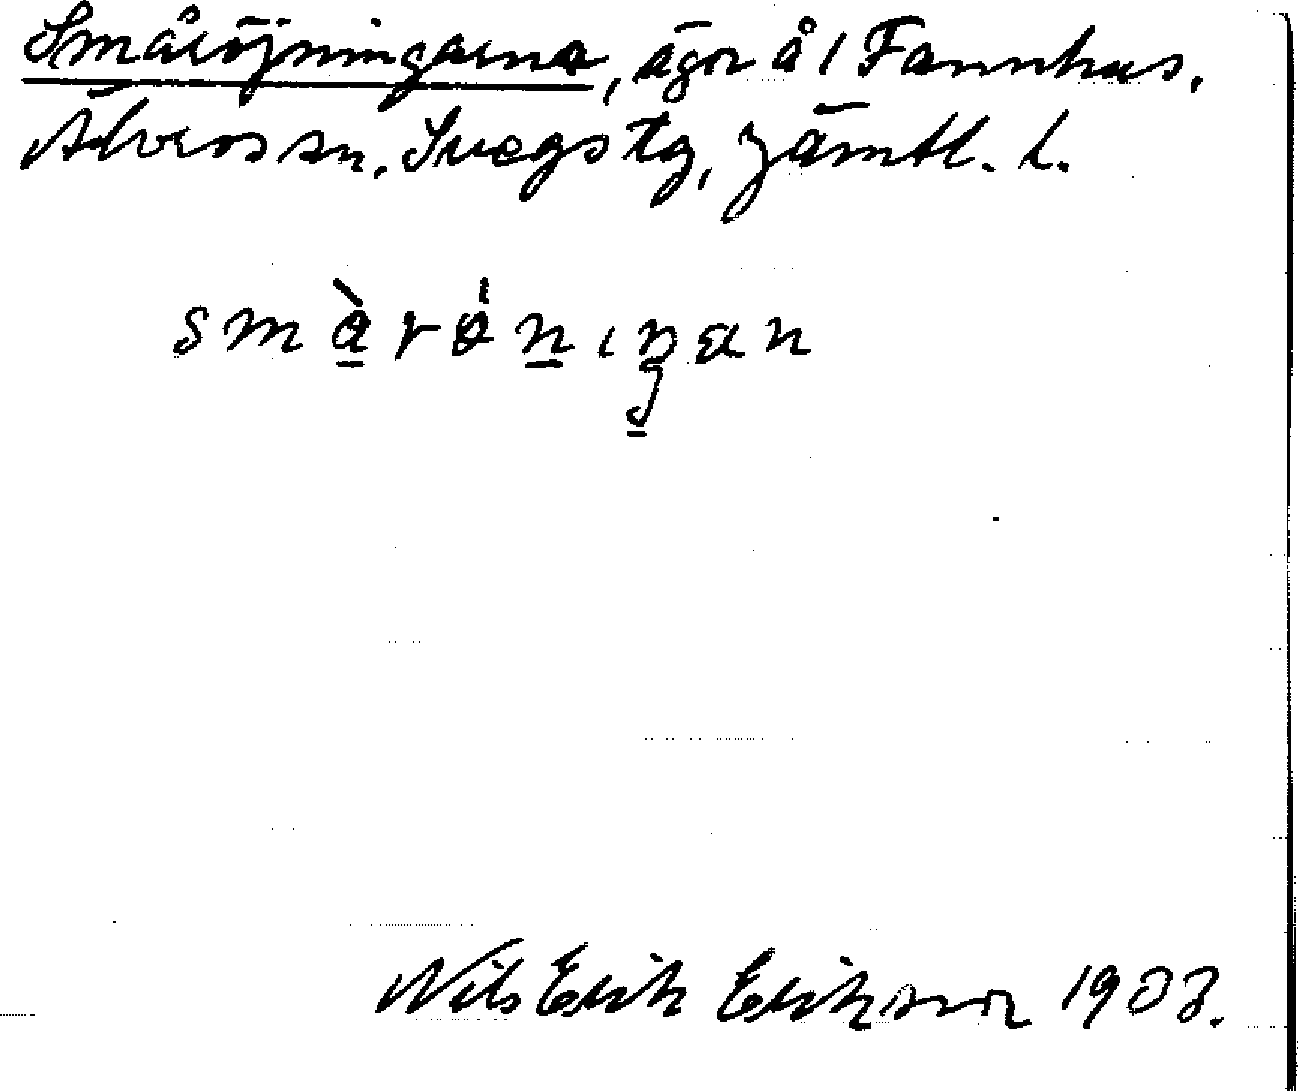 Småröjningarna, ägor å 1 Fannhus,
Älvros sn, Svegs tg, Jämtl. l.
smàrönıŋan
Nils Erik Erikson 1903.